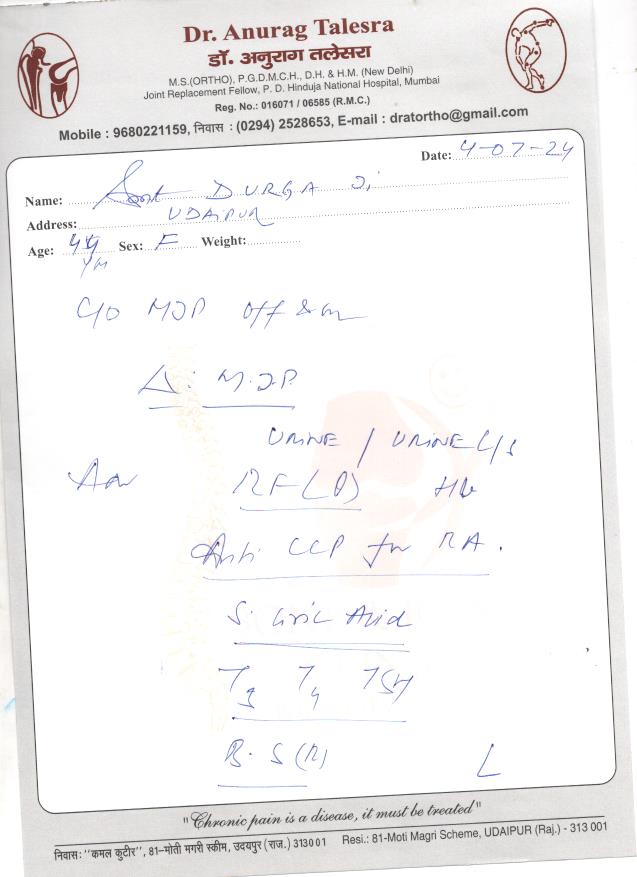 Dr. Anurag Talesra
डॉ. अनुराग तलेसरा
M.S.(ORTHO), P.G.D.M.C.H., D.H. & H.M. (New Delhi)
Joint Replacement Fellow, P. D. Hinduja National Hospital, Mumbai
Reg. No.: 016071 / 06585 (R.M.C.)
Mobile : 9680221159, निवास : (0294) 2528653, E-mail : dratortho@gmail.com
Date: 4-07-24
Name: Smt DURGA Ji
Address: UDAIPUR
Age: Sex: F Weight:
C/O MJP off & on
Δ: M.J.P.
URINE / URINE C/S
Adv RF (Q) Hb
Anti CCP for RA.
S. Uric Acid
T3 T4 TSH
B. S (R)
"Chronic pain is a disease, it must be treated"
निवास: "कमल कुटीर", 81-मोती मगरी स्कीम, उदयपुर (राज.) 313001 Resi.: 81-Moti Magri Scheme, UDAIPUR (Raj.) - 313 001